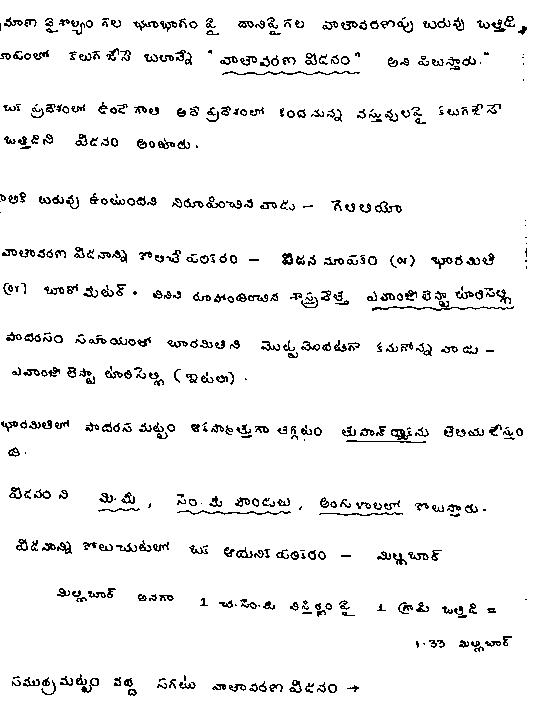 ప్రమాణ వైశాల్యం గల భూభాగం పై దానిపై గల వాతావరణపు బరువు ఒత్తిడి,
రూపంలో కలుగజేసే బలాన్నే "వాతావరణ పీడనం" అని పిలుస్తారు."
ఒక ప్రదేశంలో ఉండే గాలి అదే ప్రదేశంలో కింద నున్న వస్తువులపై కలుగజేసే
ఒత్తిడిని పీడనం అంటారు.
గాలికి బరువు ఉంటుందని నిరూపించిన వాడు - గెలీలియో
వాతావరణ పీడనాన్ని కొలిచే పరికరం - పీడన మాపకం (or) భారమితి
(or) బారోమీటర్. దీనిని రూపొందించిన శాస్త్రవేత్త ఎవాంజలిస్టా టారిసెల్లి
పాదరసం సహాయంతో భారమితిని మొట్టమొదటగా కనుగొన్న వాడు -
ఎవాంజలిస్టా టారిసెల్లి (ఇటలీ).
భారమితిలో పాదరస మట్టం ఆకస్మాత్తుగా తగ్గటం తుఫాన్ రాకను తెలియజేస్తుం
ది.
పీడనం ని మి.మీ, సెం.మీ పౌండులు, అంగుళాలలో కొలుస్తారు.
పీడనాన్ని కొలుచుటలో ఒక ఆధునిక పరికరం - మిల్లీబార్
మిల్లీబార్ అనగా 1 చ.సెం.మీ విస్తీర్ణం పై 1 గ్రాము ఒత్తిడి =
1.33 మిల్లీబార్
సముద్ర మట్టం వద్ద సగటు వాతావరణ పీడనం →